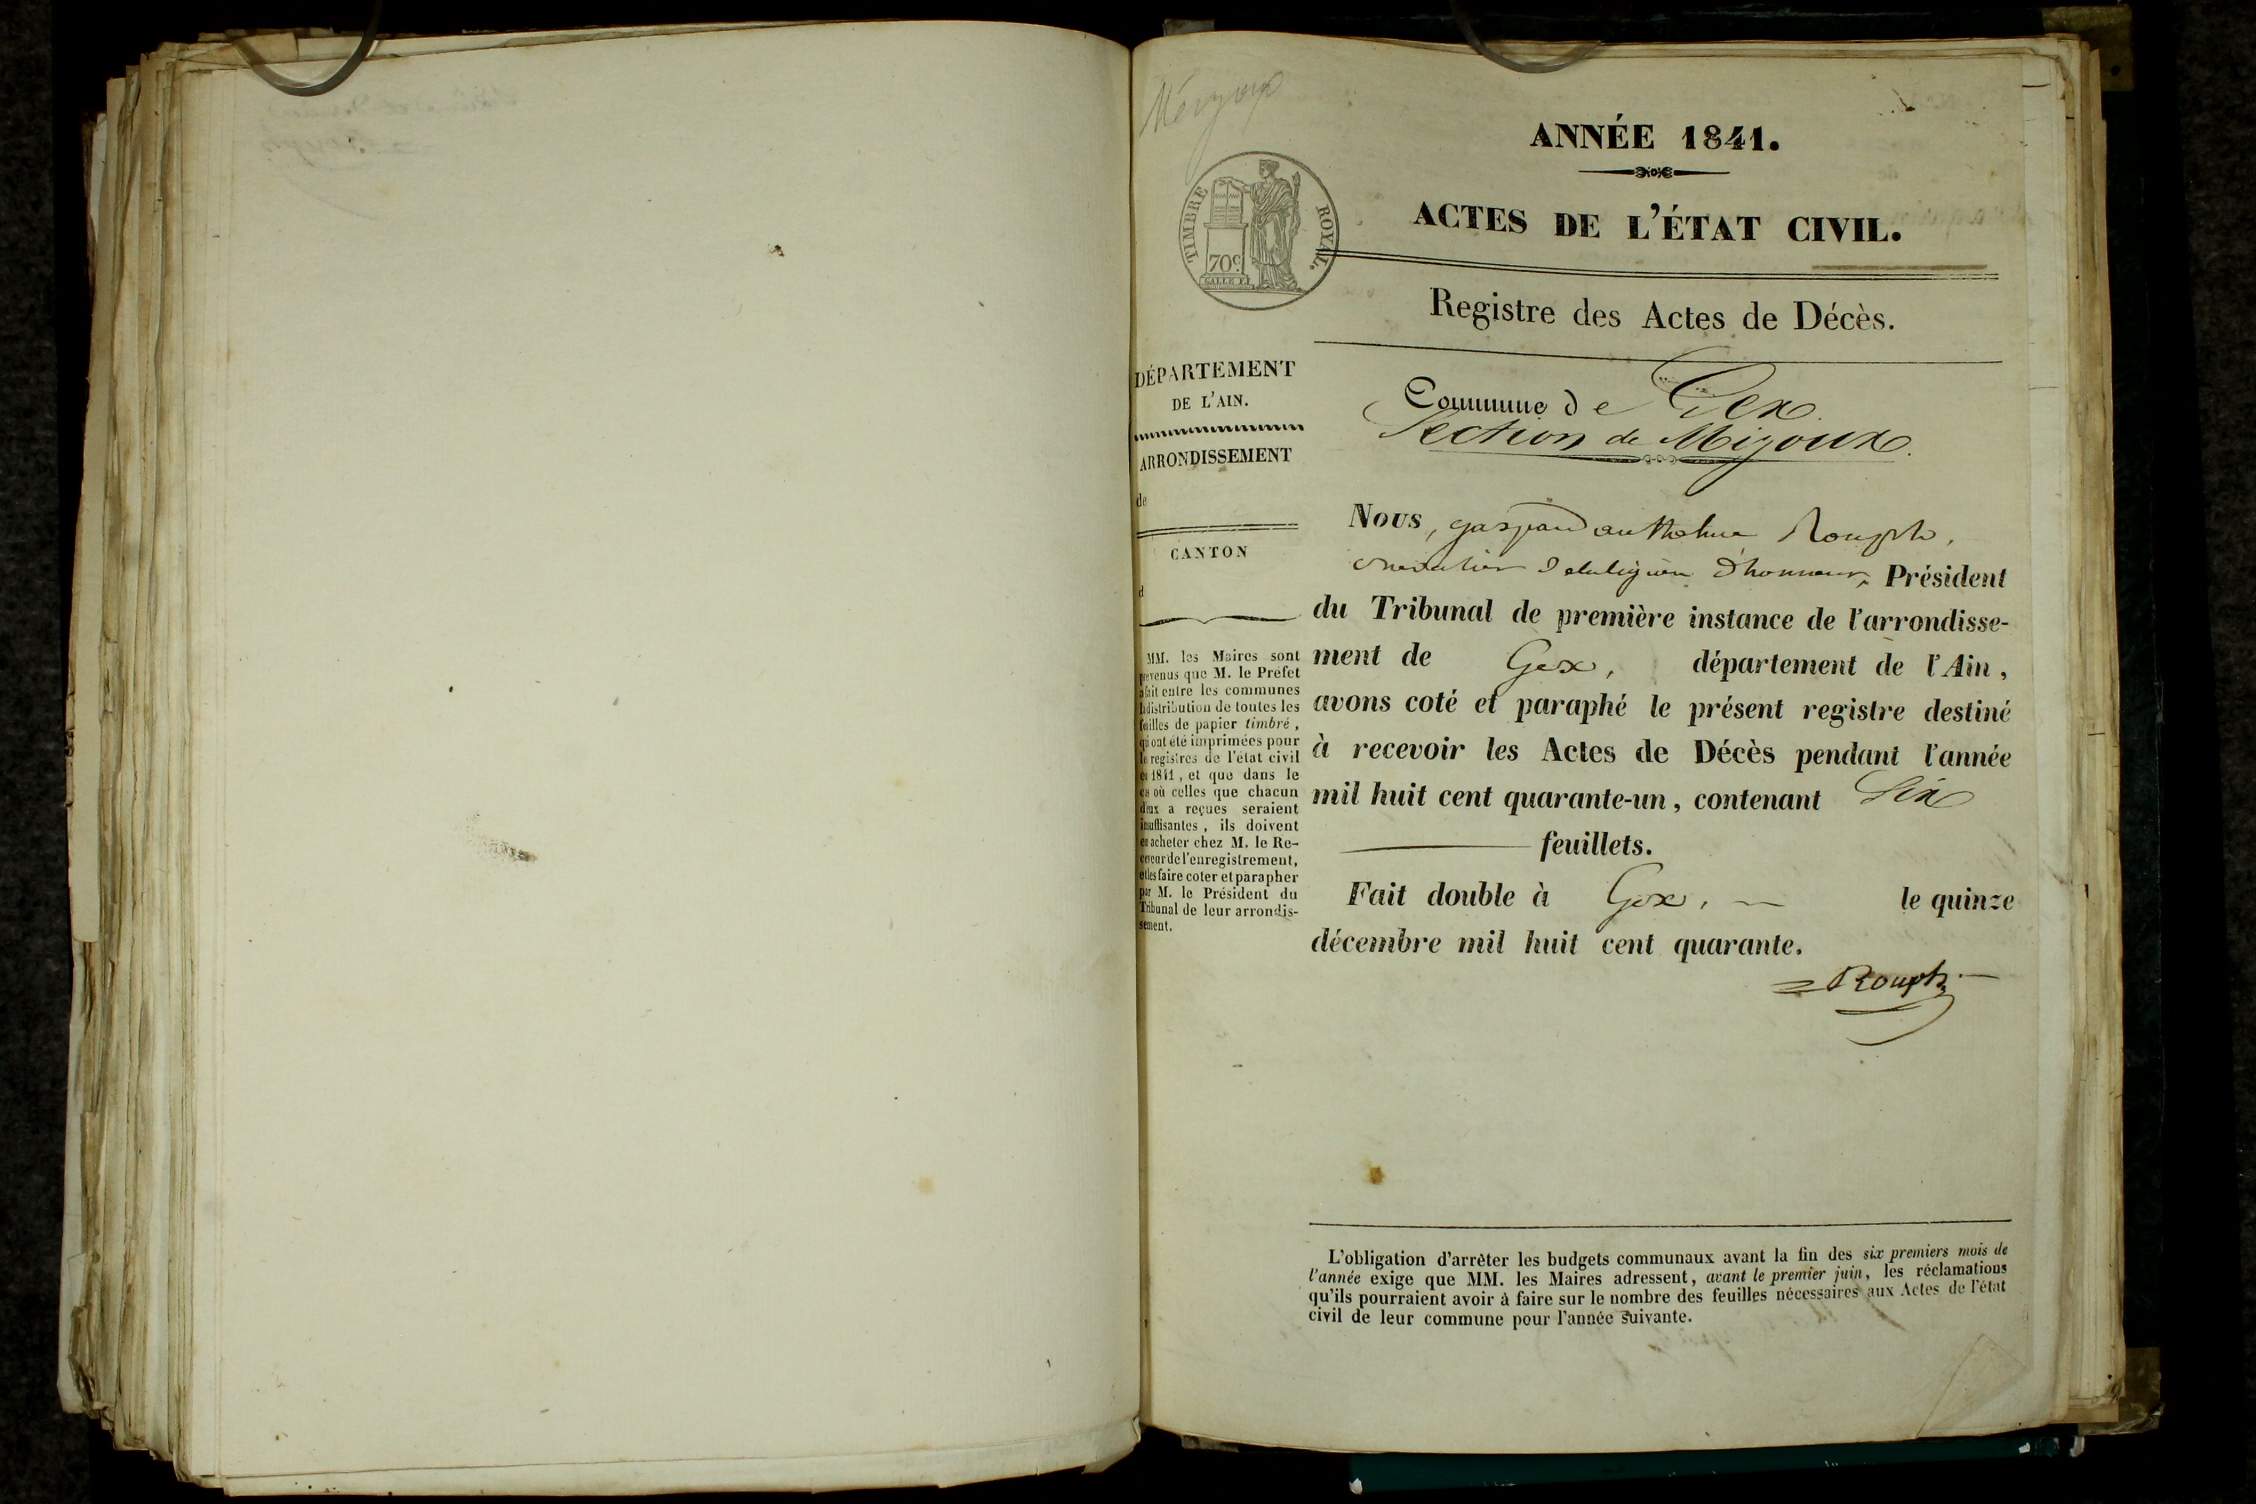 Mégoux
ANNÉE 1841.
ACTES DE L'ÉTAT CIVIL.
TIMBRE ROYAL.
70c.
Registre des Actes de Décès.
DÉPARTEMENT
DE L'AIN.
ARRONDISSEMENT
de
CANTON
d
MM. les Maires sont
prévenus que M. le Préfet
a fait entre les communes
la distribution de toutes les
feuilles de papier timbré,
qui ont été imprimées pour
les registres de l'état civil
de 1841, et que dans le
cas où celles que chacun
d'eux a reçues seraient
insuffisantes, ils doivent
en acheter chez M. le Re-
ceveur de l'enregistrement,
et les faire coter et parapher
par M. le Président du
Tribunal de leur arrondis-
sement.
Commune de Gex.
Section de Mijoux.
Nous, gaspard anthelme Rouph,
chevalier de la légion d'honneur, Président
du Tribunal de première instance de l'arrondisse-
ment de Gex, département de l'Ain,
avons coté et paraphé le présent registre destiné
à recevoir les Actes de Décès pendant l'année
mil huit cent quarante-un, contenant Six
feuillets.
Fait double à Gex, le quinze
décembre mil huit cent quarante.
Rouph
L'obligation d'arrêter les budgets communaux avant la fin des six premiers mois de
l'année exige que MM. les Maires adressent, avant le premier juin, les réclamations
qu'ils pourraient avoir à faire sur le nombre des feuilles nécessaires aux Actes de l'état
civil de leur commune pour l'année suivante.